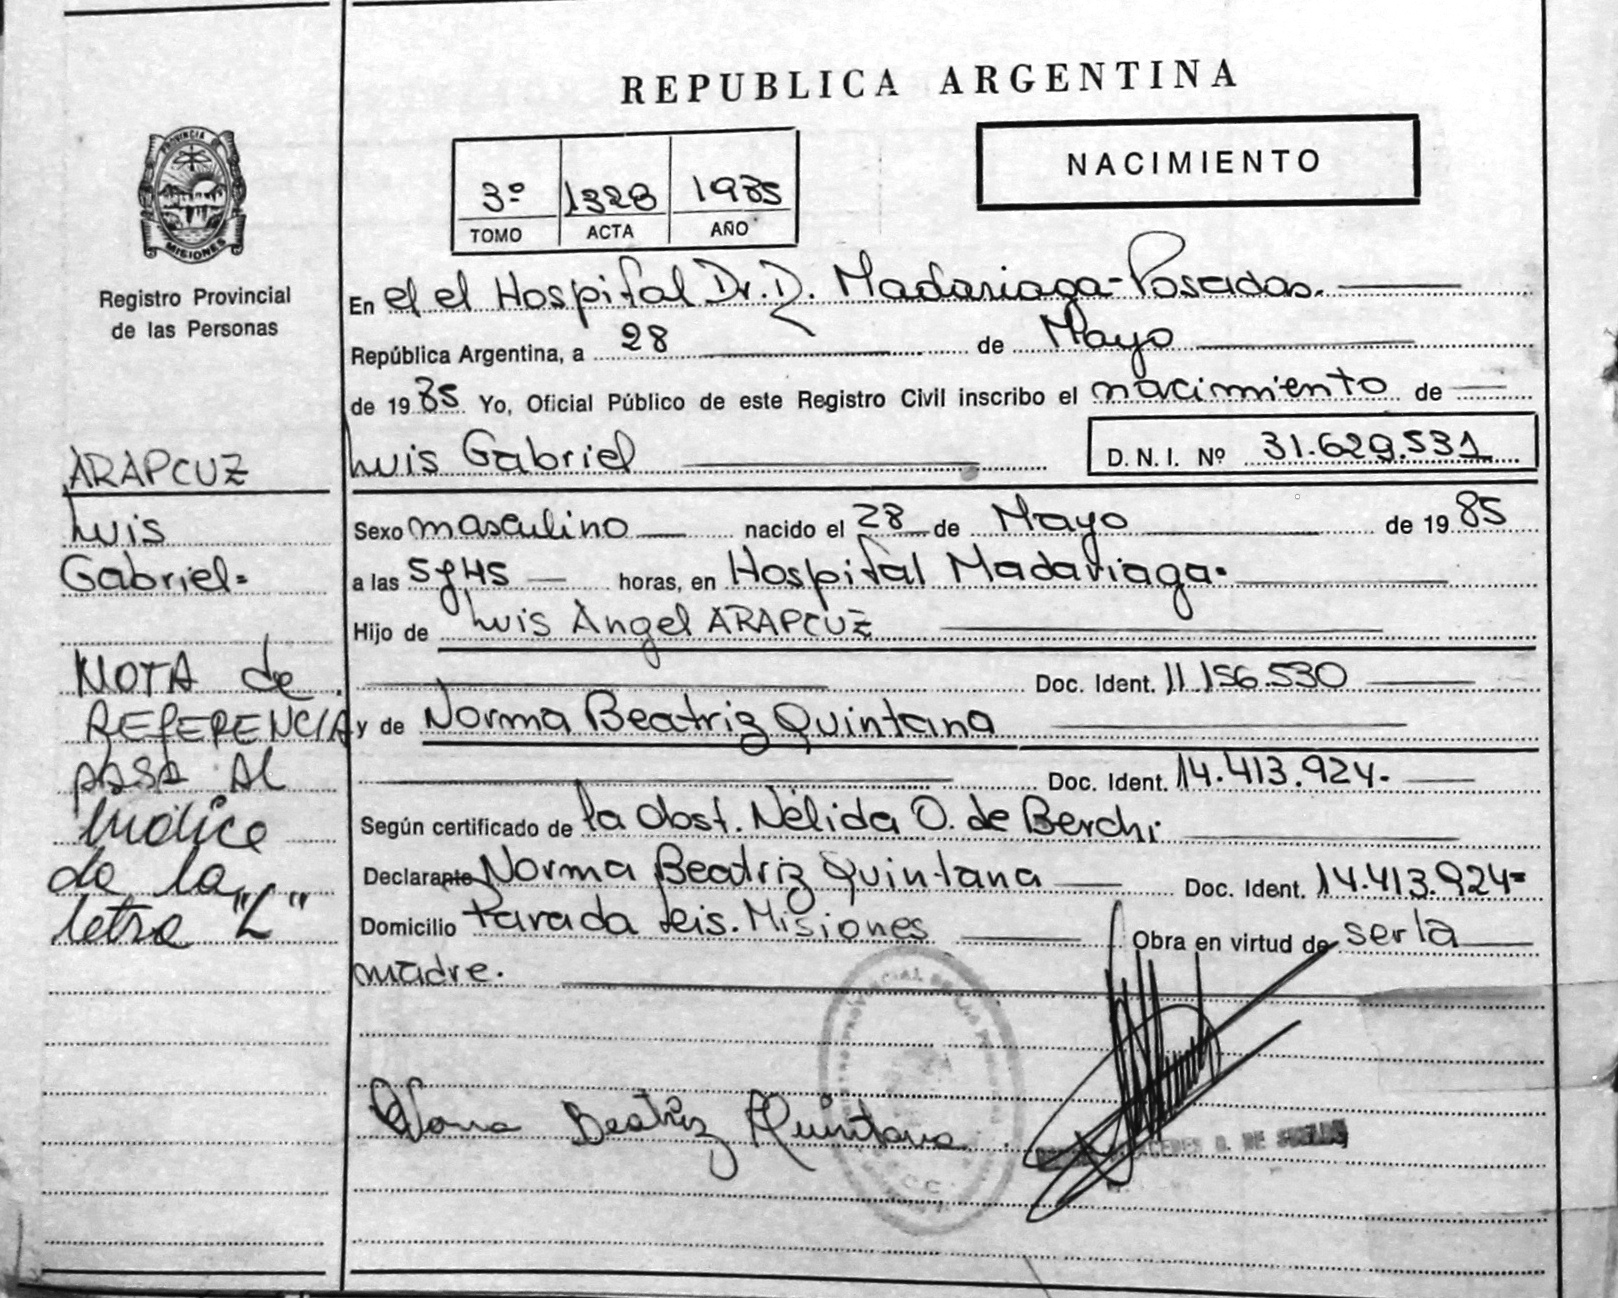 REPUBLICA ARGENTINA
NACIMIENTO
3º 1328 1985
TOMO ACTA AÑO
PROVINCIA DE
MISIONES
Registro Provincial
de las Personas
En el el Hospital Dr. D. Madariaga-Posadas.
República Argentina, a 28 de Mayo
de 1985 Yo, Oficial Público de este Registro Civil inscribo el nacimiento de
Luis Gabriel D. N. I. Nº 31.629.531
Sexo masculino nacido el 28 de Mayo de 1985
a las 5 y 45 horas, en Hospital Madariaga.
Hijo de Luis Angel ARAPCUZ
Doc. Ident. 11.156.530
y de Norma Beatriz Quintana
Doc. Ident. 14.413.924.
Según certificado de la Obst. Nélida O. de Berchi
Declarante Norma Beatriz Quintana Doc. Ident. 14.413.924=
Domicilio Parada Leis. Misiones Obra en virtud de ser la
madre.
ARAPCUZ
Luis
Gabriel=
NOTA de
REFERENCIA
pasa al
Indice
de la
letra "L"
Norma Beatriz Quintana
DE